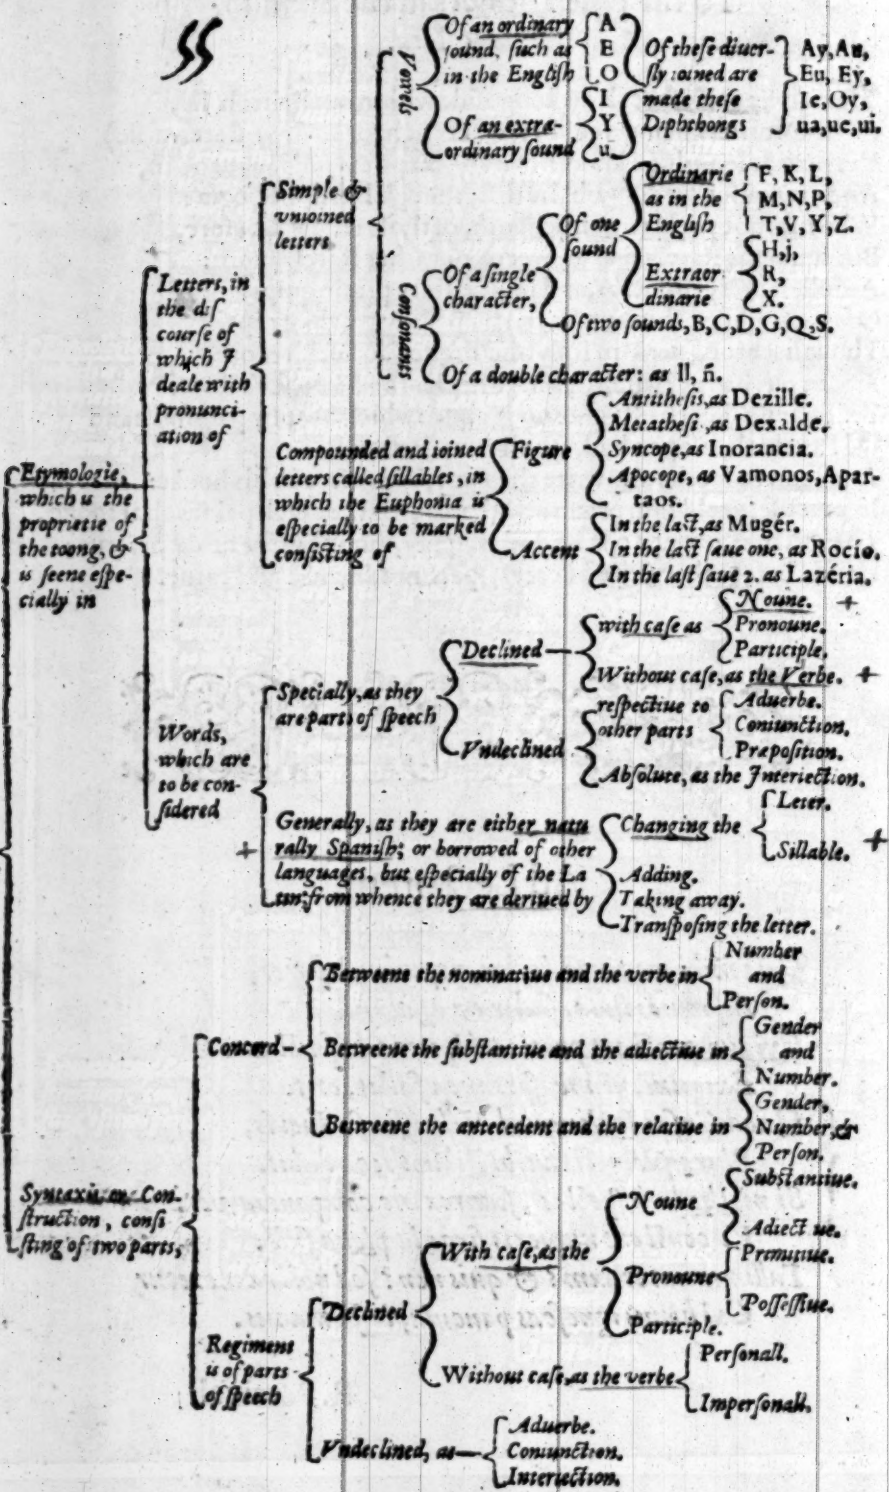 Etymologie,
which is the
proprietie of
the toong, &
is ſeene eſpe-
cially in
Letters, in
the diſ
courſe of
which I
deale with
pronunci-
ation of
Simple &
vnioined
letters
Vowels
Of an ordinary
ſound, ſuch as
in the Engliſh
A
E
O
Of an extra-
ordinary ſound
I
Y
u
Of theſe diuer-
ſly ioined are
made theſe
Diphthongs
Ay, Au,
Eu, Ey,
Ie, Oy,
ua, ue, ui.
Conſonants
Of a ſingle
character,
Of one
ſound
Ordinarie
as in the
Engliſh
F, K, L,
M, N, P,
T, V, Y, Z.
Extraor
dinarie
H, j,
R,
X.
Of two ſounds, B, C, D, G, Q, S.
Of a double character: as ll, ñ.
Compounded and ioined
letters called ſillables, in
which the Euphonia is
eſpecially to be marked
conſiſting of
Figure
Antitheſis, as Dezille.
Metatheſi, as Dexalde.
Syncope, as Inorancia.
Apocope, as Vamonos, Apar-
taos.
Accent
In the laſt, as Mugér.
In the laſt ſaue one, as Rocío.
In the laſt ſaue 2. as Lazéria.
Words,
which are
to be con-
ſidered
Specially, as they
are parts of ſpeech
Declined
with caſe as
Noune.
Pronoune.
Participle.
Without caſe, as the Verbe.
Vndeclined
reſpectiue to
other parts
Aduerbe.
Coniunction.
Præpoſition.
Abſolute, as the Interiection.
Generally, as they are either natu
rally Spaniſh; or borrowed of other
languages, but eſpecially of the La
tin: from whence they are deriued by
Changing the
Leter.
Sillable.
Adding.
Taking away.
Tranſpoſing the letter.
Syntaxis, or Con-
ſtruction, conſi
ſting of two parts,
Concord
Betweene the nominatiue and the verbe in
Number
and
Perſon.
Betweene the ſubſtantiue and the adiectiue in
Gender
and
Number.
Betweene the antecedent and the relatiue in
Gender,
Number, &
Perſon.
Regiment
is of parts
of ſpeech
Declined
With caſe, as the
Noune
Subſtantiue.
Adiect ue.
Pronoune
Primitiue.
Poſſeſſiue.
Participle.
Without caſe, as the verbe
Perſonall.
Imperſonall.
Vndeclined, as
Aduerbe.
Coniunction.
Interiection.